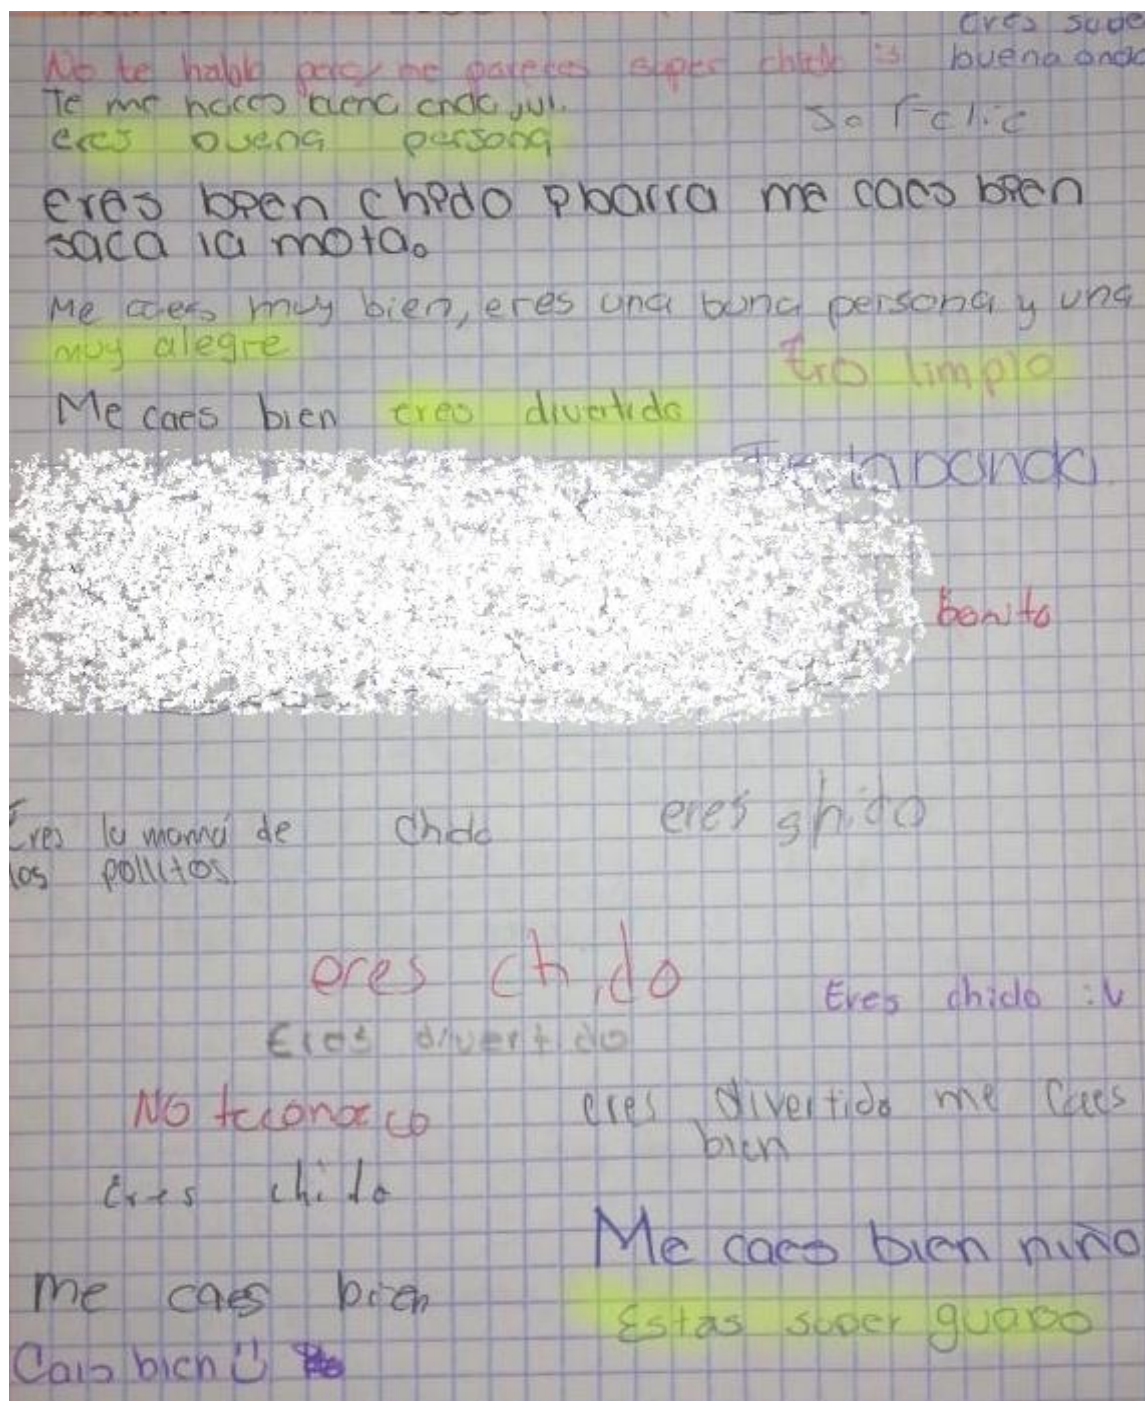 eres
buena onda
No te hablo pero me pareces super chido :)
Te me haces buena onda
eres buena persona
eres bien chido Ybarra me caes bien
saca la mota.
Me caes muy bien, eres una buna persona y una
muy alegre
Ero limpio
Me caes bien eres divertido
la banda
bonito
Eres la mamá de
los pollitos.
chido
eres shido
eres chido
Eres chido :v
Eres divertido
No teconozco
eres divertido me caes
bien
Eres chido
Me caes bien niño
me caes bien
Estas super guapo
Cais bien